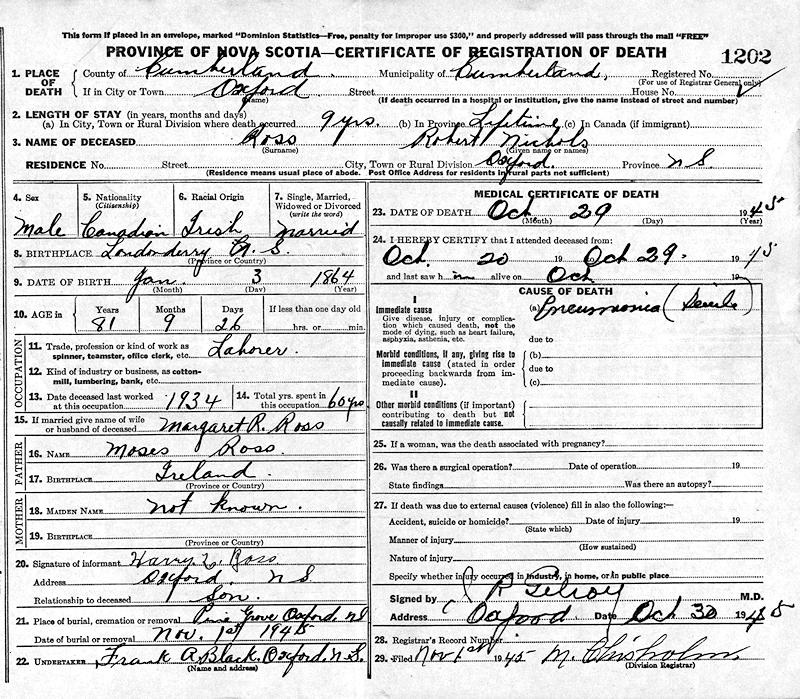 This form if placed in an envelope, marked "Dominion Statistics—Free, penalty for improper use $300," and properly addressed will pass through the mail "FREE"
PROVINCE OF NOVA SCOTIA—CERTIFICATE OF REGISTRATION OF DEATH
1202
1. PLACE OF DEATH { County of Cumberland. Municipality of Cumberland, Registered No.
(For use of Registrar General only)
If in City or Town Oxford Street House No.
(Name) (If death occurred in a hospital or institution, give the name instead of street and number)
2. LENGTH OF STAY (in years, months and days)
(a) In City, Town or Rural Division where death occurred 9 yrs. (b) In Province Lifetime (c) In Canada (if immigrant)
3. NAME OF DECEASED Ross Robert Nichols
(Surname) (Given name or names)
RESIDENCE No. Street City, Town or Rural Division Oxford. Province N S.
(Residence means usual place of abode. Post Office Address for residents in rural parts not sufficient)
4. Sex 5. Nationality (Citizenship) 6. Racial Origin 7. Single, Married, Widowed or Divorced (write the word)
Male Canadian Irish married
8. BIRTHPLACE Londonderry N. S.
(Province or Country)
9. DATE OF BIRTH Jan. 3 1864
(Month) (Day) (Year)
10. AGE in { Years Months Days If less than one day old
81 9 26 hrs. or min.
OCCUPATION
11. Trade, profession or kind of work as spinner, teamster, office clerk, etc. Laborer.
12. Kind of industry or business, as cotton-mill, lumbering, bank, etc.
13. Date deceased last worked at this occupation 1934 14. Total yrs. spent in this occupation 60 yrs
15. If married give name of wife or husband of deceased Margaret R. Ross
FATHER
16. NAME Moses Ross.
17. BIRTHPLACE Ireland.
(Province or Country)
MOTHER
18. MAIDEN NAME not known.
19. BIRTHPLACE
(Province or Country)
20. Signature of informant Harry L. Ross
Address Oxford. N S.
Relationship to deceased Son.
21. Place of burial, cremation or removal Pine Grove Oxford. N S
Date of burial or removal Nov. 1st 1945
22. UNDERTAKER Frank A. Black. Oxford. N. S.
(Name and address)
MEDICAL CERTIFICATE OF DEATH
23. DATE OF DEATH Oct 29 1945
(Month) (Day) (Year)
24. I HEREBY CERTIFY that I attended deceased from:
Oct. 20 19 Oct 29. 1945
and last saw h im alive on Oct 19
CAUSE OF DEATH
I
Immediate cause
Give disease, injury or complication which caused death, not the mode of dying, such as heart failure, asphyxia, asthenia, etc.
(a) Pneumonia (Senile)
due to
Morbid conditions, if any, giving rise to immediate cause (stated in order proceeding backwards from immediate cause).
(b)
due to
(c)
II
Other morbid conditions (if important) contributing to death but not causally related to immediate cause.
25. If a woman, was the death associated with pregnancy?
26. Was there a surgical operation? Date of operation 19
State findings Was there an autopsy?
27. If death was due to external causes (violence) fill in also the following:—
Accident, suicide or homicide? Date of injury 19
(State which)
Manner of injury
(How sustained)
Nature of injury
Specify whether injury occurred in industry, in home, or in public place
Signed by M.D.
Address Oxford Date Oct 30 1945
28. Registrar's Record Number
29. Filed Nov 1st 1945 M. Chisholm.
(Division Registrar)